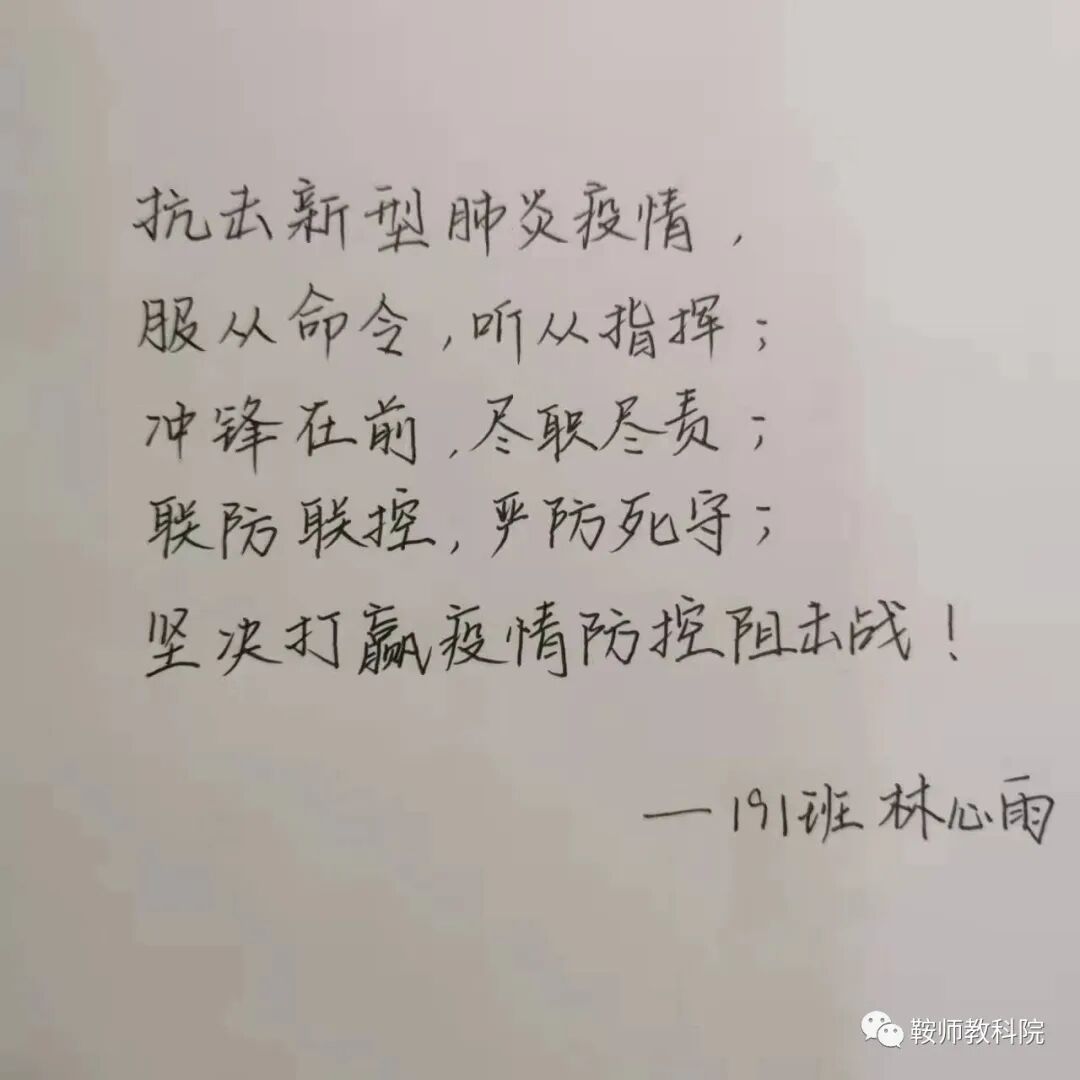 抗去新型肺炎疫情，
服从命令，听从指挥；
冲锋在前，尽职尽责；
联防联控，严防死守；
坚决打赢疫情防控阻击战！
—191班 林心雨
鞍师教科院